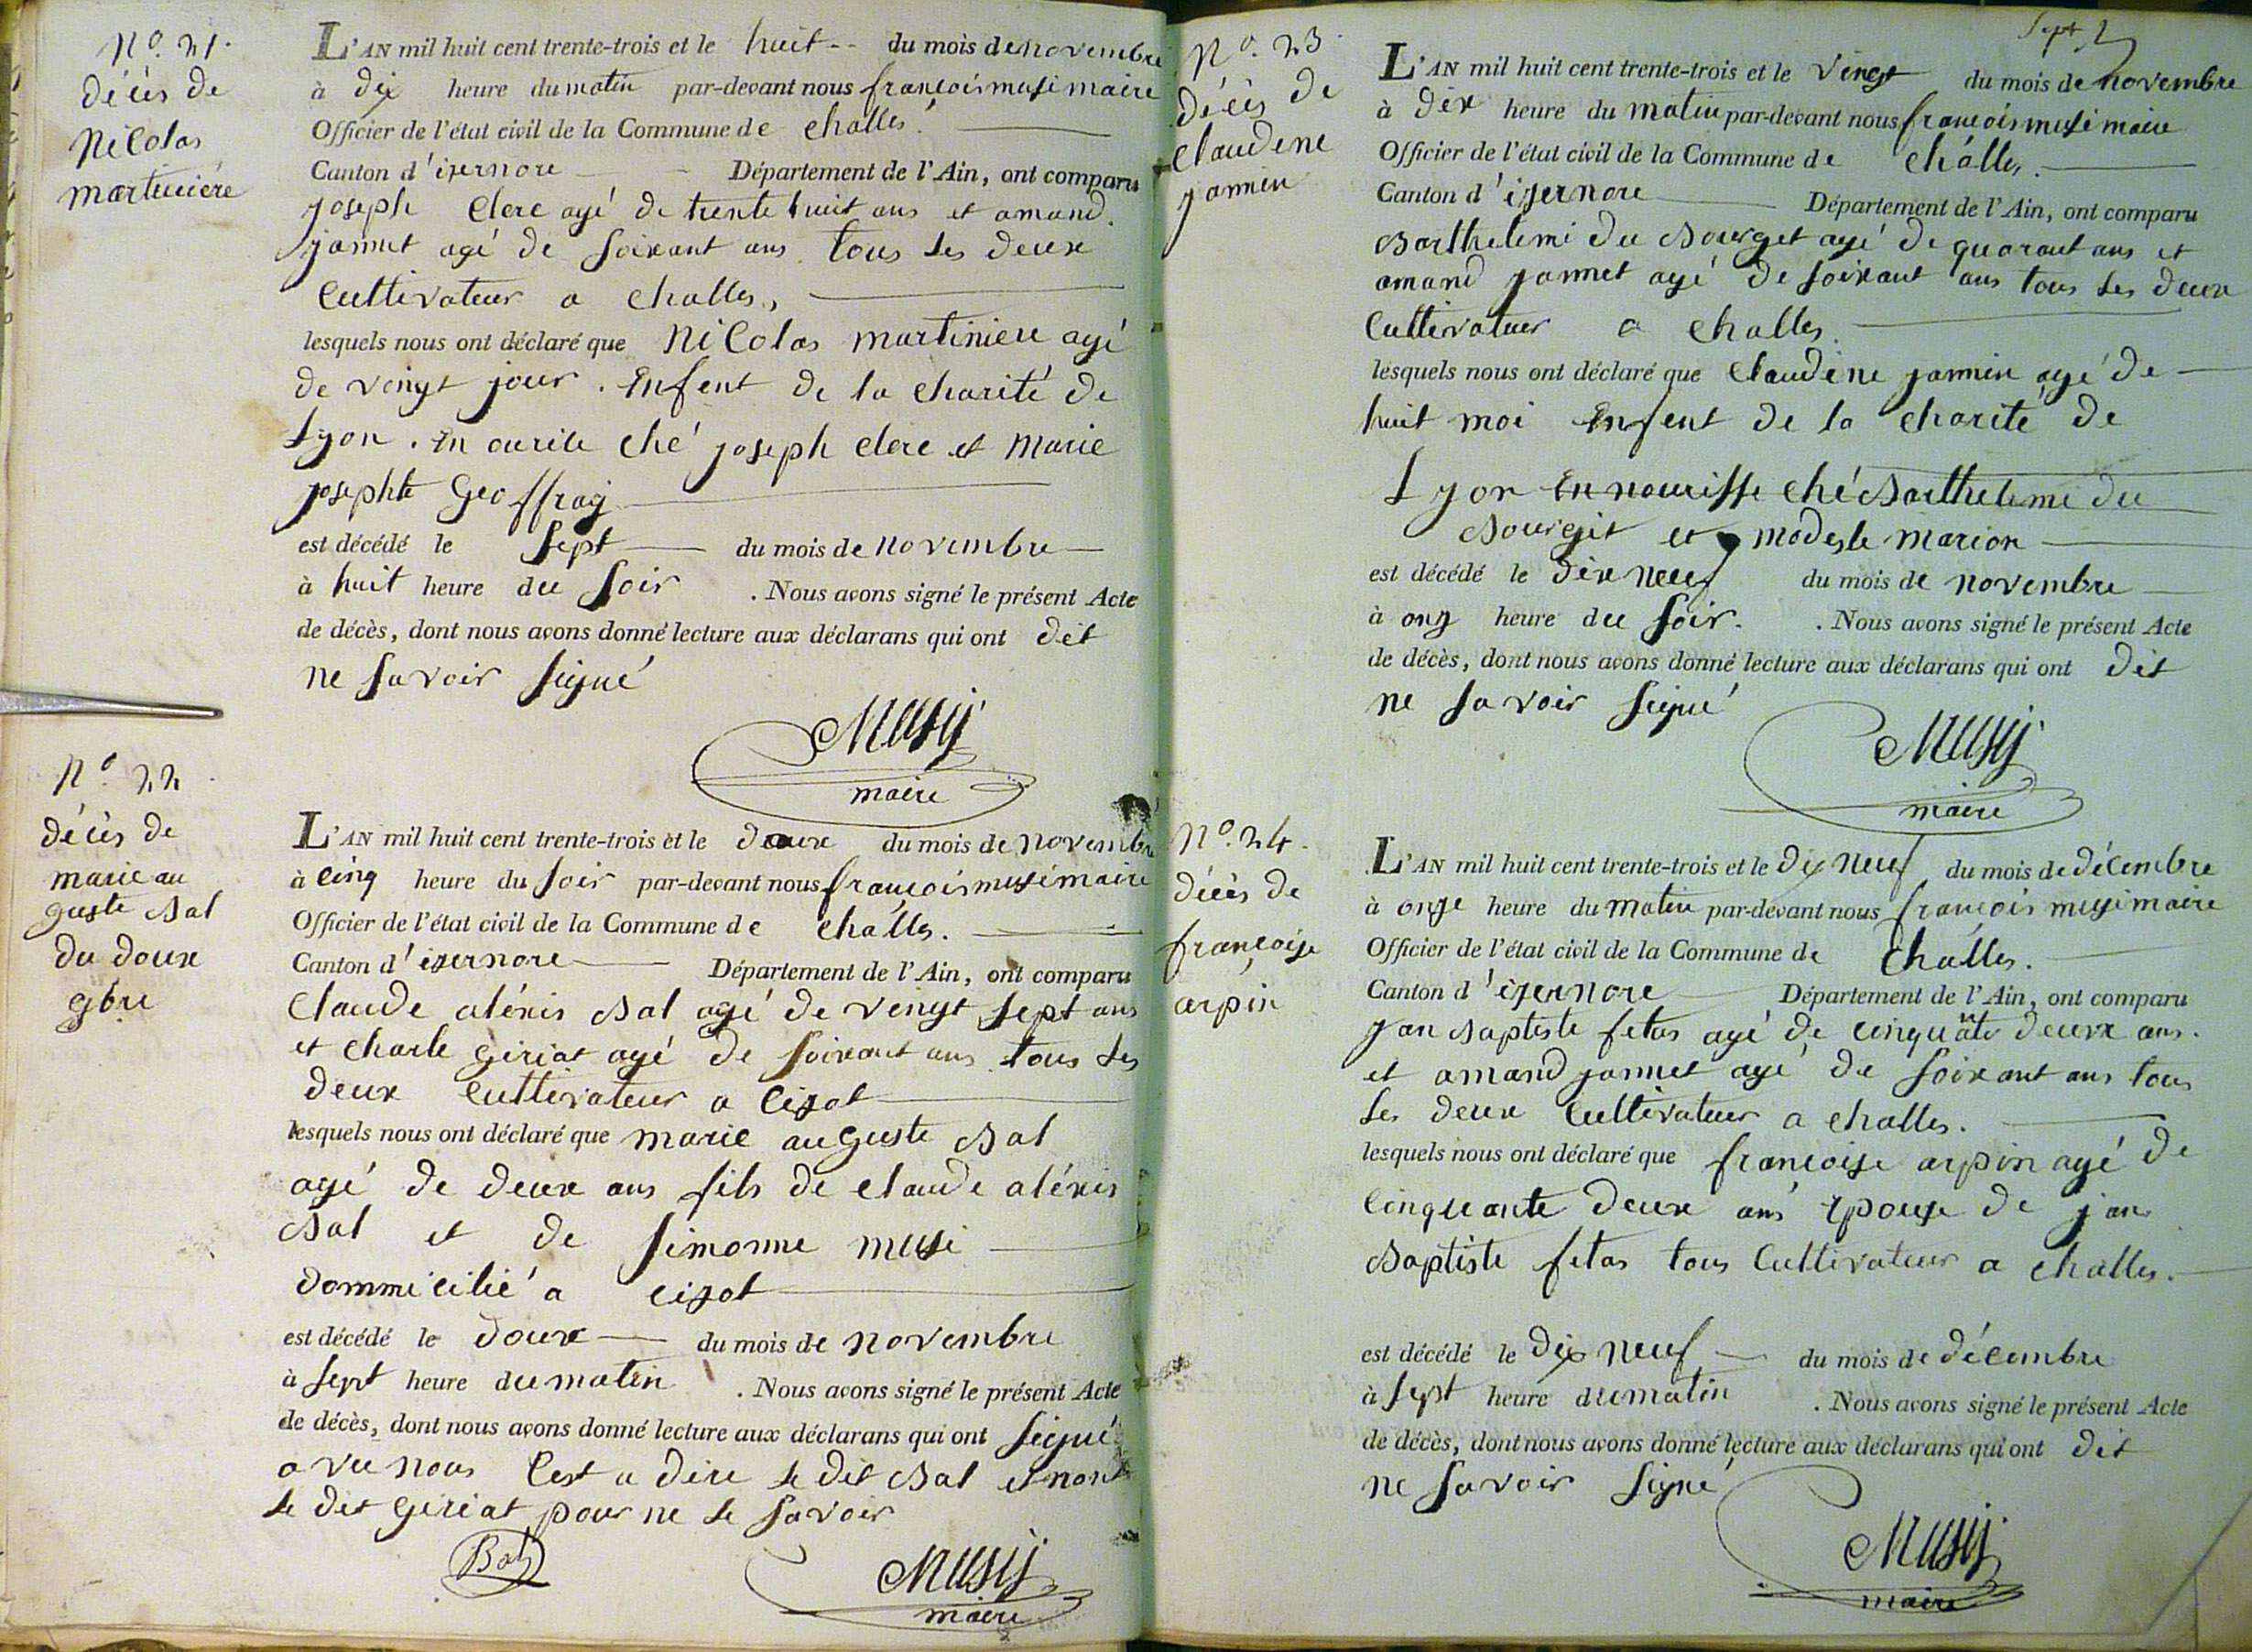 N.º 21.
décès de
Nicolas
martiniére
L'AN mil huit cent trente-trois et le huit -- du mois de novembre
à dix heure du matin par-devant nous françois musi maire
Officier de l'état civil de la Commune de challes. 
Canton d'izernore Département de l'Ain, ont comparu
joseph clerc agé de trente huit ans et amand.
jannet agé de soixant ans tous les deux
cultivateur a challes,
lesquels nous ont déclaré que Nicolas martiniere agé
de vingt jour. enfent de la charité de
Lyon. en ourite ché joseph clerc et Marie
josephte Geoffray
est décédé le sept du mois de novembre
à huit heure du soir . Nous avons signé le présent Acte
de décès, dont nous avons donné lecture aux déclarans qui ont dit
ne savoir signé
Musy
maire
N.º 22.
décès de
marie au
guste Bal
du douxe
9bre
L'AN mil huit cent trente-trois et le douxe du mois de novembre
à cinq heure du soir par-devant nous françois musi maire
Officier de l'état civil de la Commune de challes.
Canton d'izernore Département de l'Ain, ont comparu
Claude aléxis Bal agé de vingt sept ans
et charle giriat agé de soixant ans tous les
deux cultivateur a cizot
lesquels nous ont déclaré que marie auguste Bal
agé de deux ans fils de claude aléxis
Bal et de simonne musi
dommicilié a cizot
est décédé le douxe du mois de novembre
à sept heure du matin . Nous avons signé le présent Acte
de décès, dont nous avons donné lecture aux déclarans qui ont signé
a vec nous c'est a dire le dit Bal et non
le dit giriat pour ne le savoir
Bal
Musy
maire
Sept
N.º 23.
décès de
claudine
jannin
L'AN mil huit cent trente-trois et le vingt du mois de novembre
à dix heure du matin par-devant nous françois musi maire
Officier de l'état civil de la Commune de challes.
Canton d'izernore Département de l'Ain, ont comparu
Barthelemi du Bourget agé de quarant ans et
amand jannet agé de soixant ans tous les deux
cultivateur a challes.
lesquels nous ont déclaré que claudine jannin agé de
huit moi enfent de la charité de
Lyon en nourisse ché Barthelemi du
Bourget et modeste marion
est décédé le dix neuf du mois de novembre
à onz heure du soir. . Nous avons signé le présent Acte
de décès, dont nous avons donné lecture aux déclarans qui ont dit
ne savoir signé
Musy
maire
N.º 24.
décès de
françoise
arpin
L'AN mil huit cent trente-trois et le dix neuf du mois de décembre
à onze heure du matin par-devant nous françois musi maire
Officier de l'état civil de la Commune de challes.
Canton d'izernore Département de l'Ain, ont comparu
jan Baptiste fetas agé de cinquante deux ans.
et amand jannet agé de soixant ans tous
les deux cultivateur a challes.
lesquels nous ont déclaré que françoise arpin agé de
cinquante deux ans epouse de jan
Baptiste fetas tous cultivateur a challes.
est décédé le dix neuf du mois de décembre
à sept heure du matin . Nous avons signé le présent Acte
de décès, dont nous avons donné lecture aux déclarans qui ont dit
ne savoir signé
Musy
maire